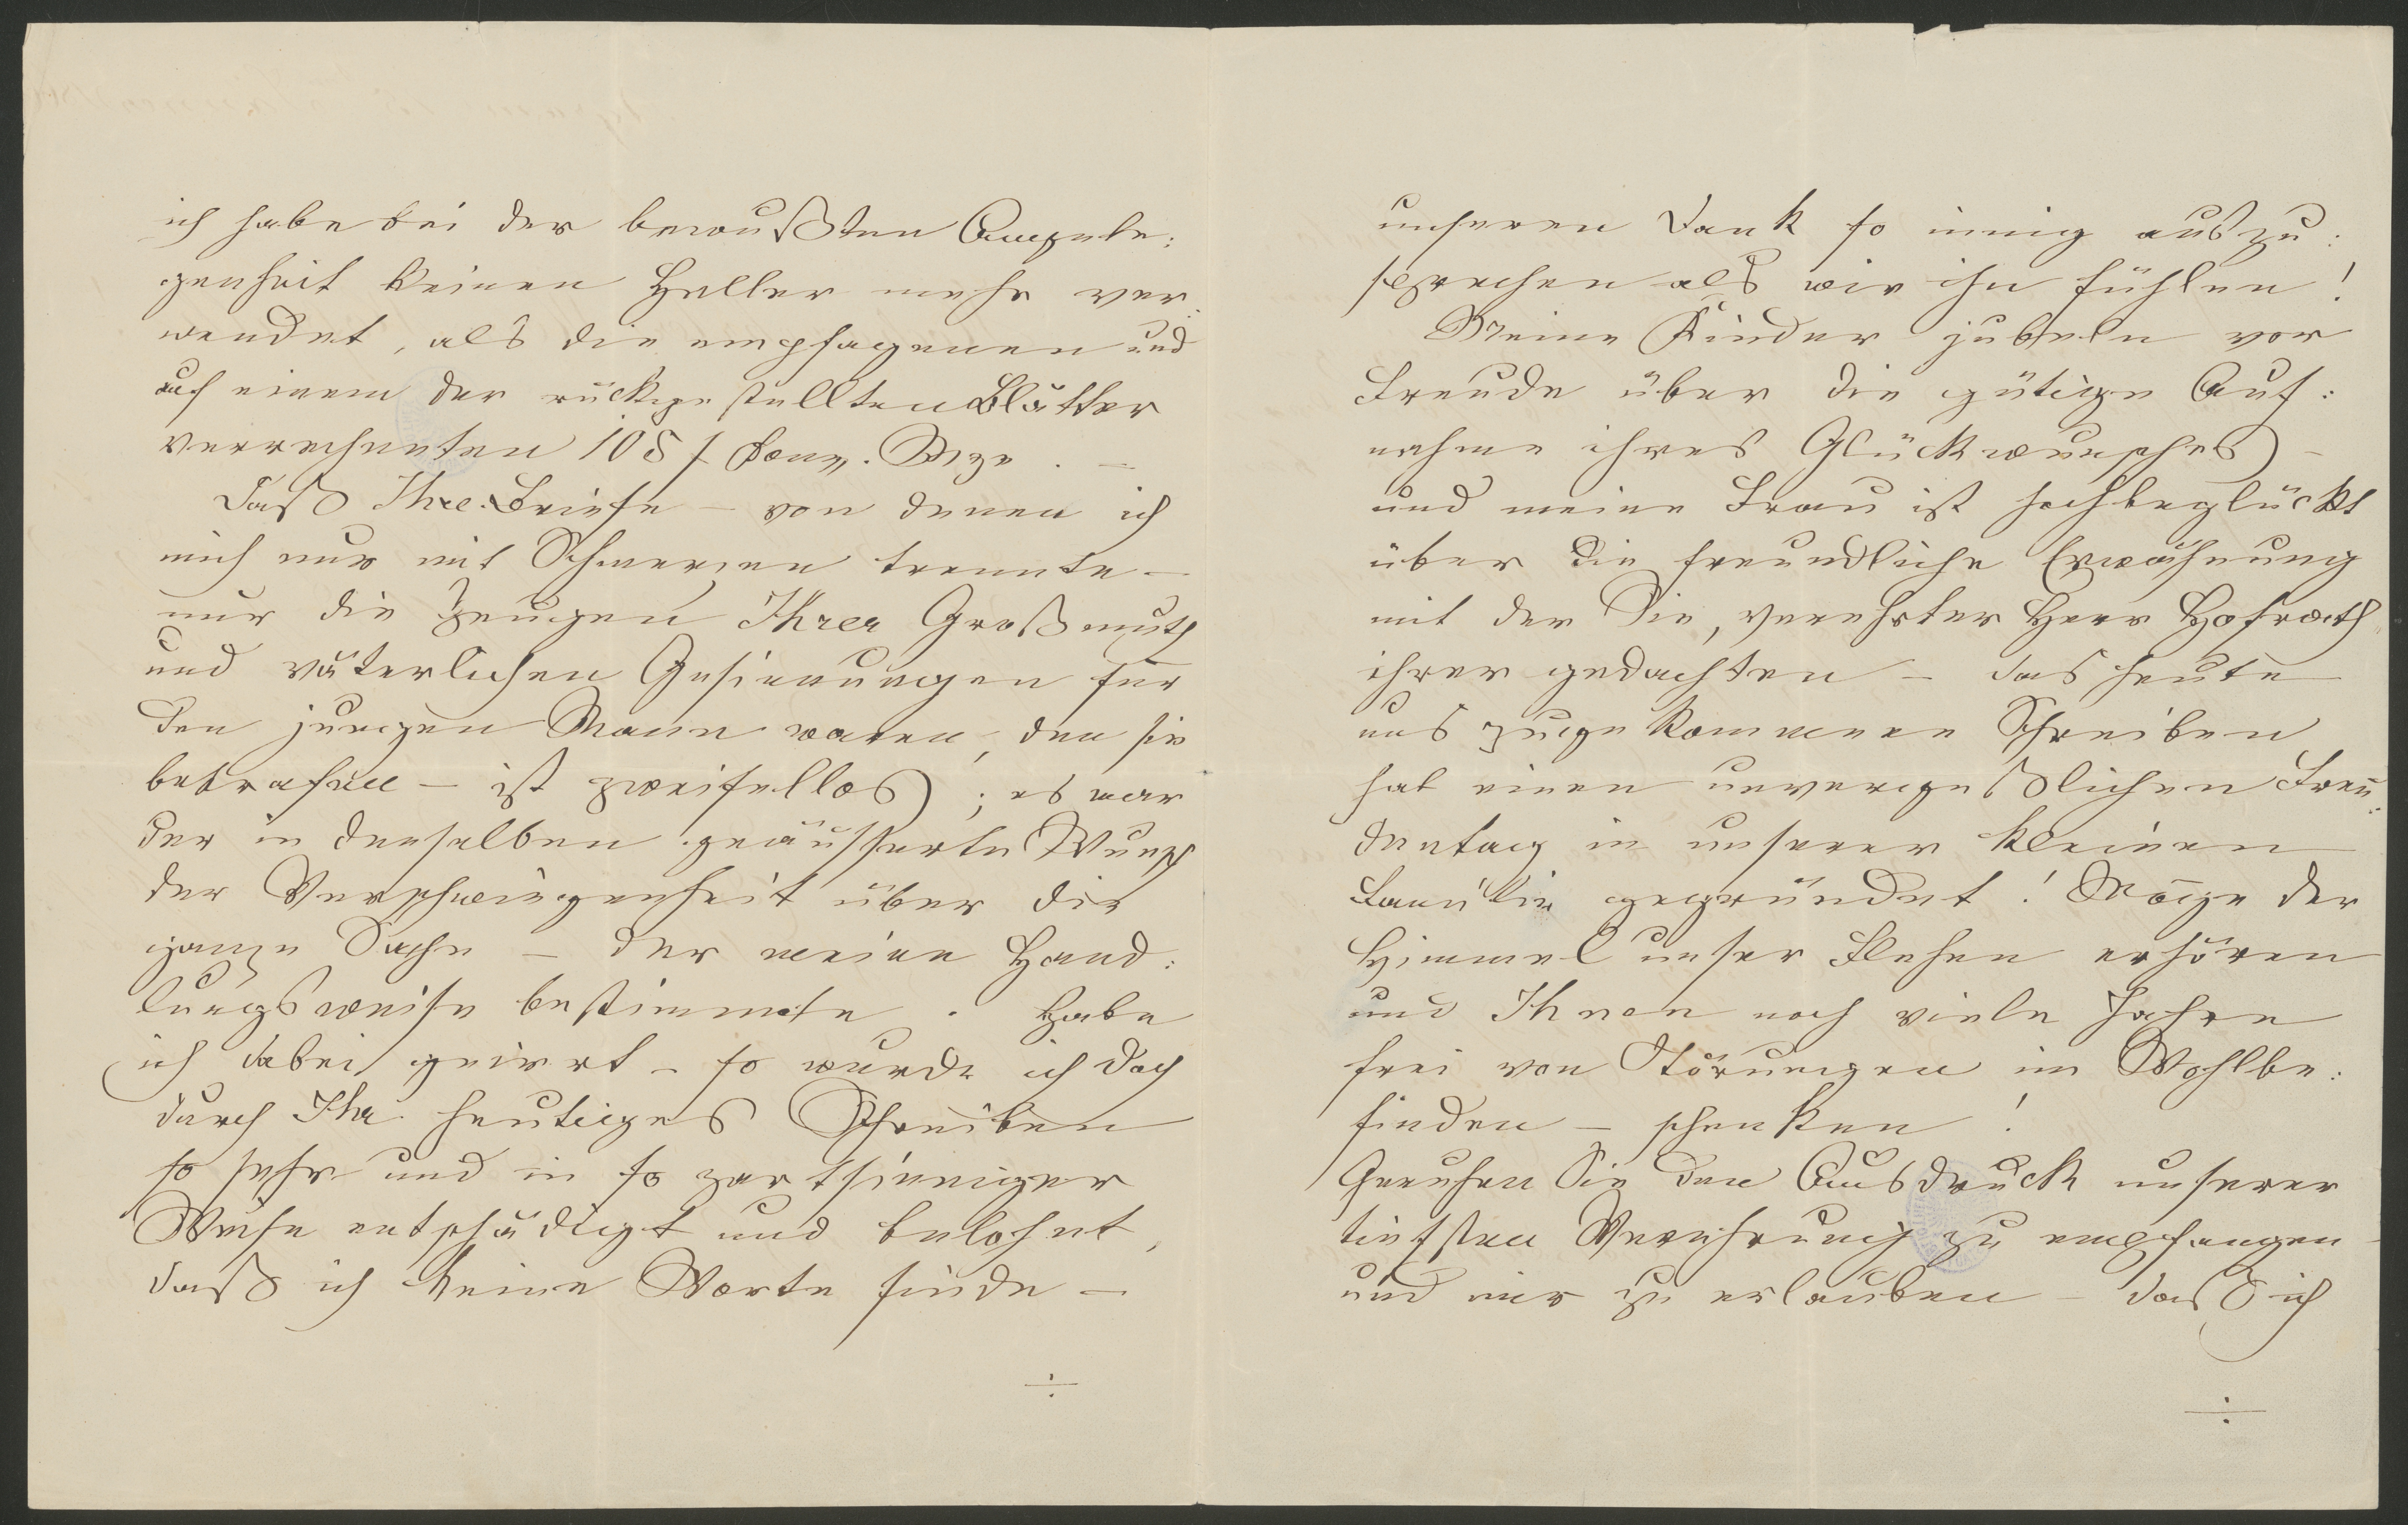 ich habe bei der bewußten Angele:
genheit keinen Heller mehr ver:
wendet, als die empfagenen und
auf einem der rückgestellten Blätter
verrechneten 105 f Conv. Mze. –
Daß Ihre Briefe – von denen ich
mich nur mit Schmerzen trennte –
nur die Zeugen Ihrer Großmuth
und väterlichen Gesinnungen für
den jungen Mann waren, den sie
betrafen – ist zweifellos; es war
der in denselben geäusserte Wunsch
der Verschwiegenheit über die
ganze Sache – der meine Hand:
lungsweise bestimmte. Habe
ich dabei geirrt – so wurde ich doch
durch Ihr heutiges Schreiben
so sehr und in so zartsinniger
Weise entschädigt und belohnt,
daß ich keine Worte finde –
÷
unseren Dank so innig auszu:
sprechen als wir ihn fühlen!
Meine Kinder jubeln vor
Freude über die gütige Auf:
nahme ihres Glückwunsches –
und meine Frau ist hochbeglückt
über die freundliche Erwähnung
mit der Sie, verehrter Herr Hofrath
ihrer gedachten – das heute
uns zugekommene Schreiben
hat einen unvergeßlichen Freu:
dentag in unserer kleinen
Familie gegründet! Möge der
Himmel unser Flehen erhören
und Ihnen noch viele Jahre
frei von Störungen im Wohlbe:
finden – schenken!
Geruhen Sie den Ausdruck unserer
tiefsten Verehrung zu empfangen
und mir zu erlauben – daß ich
÷